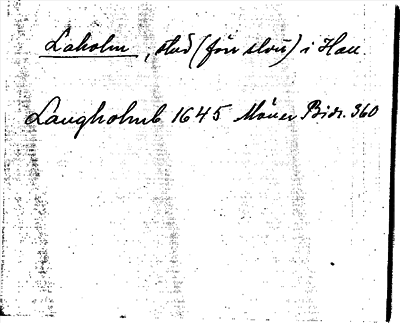 Laholm, stad (förr slott) i Hall.
Laugholmb 1645 Möner Bidr. 360